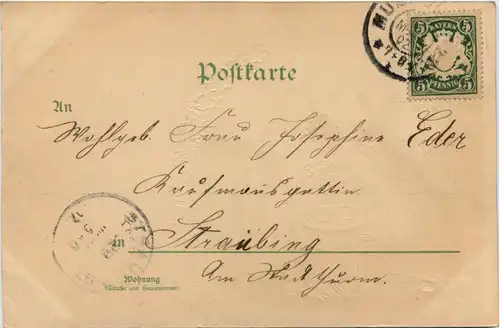 MÜ
5 BAYERN 5
5 PFENNIG 5
Postkarte
An
Wohlgeb. Frau Josephine Eder
Kaufmannsgattin
in Straubing
Am Stadtthurm.
Wohnung
(Straße und Hausnummer)